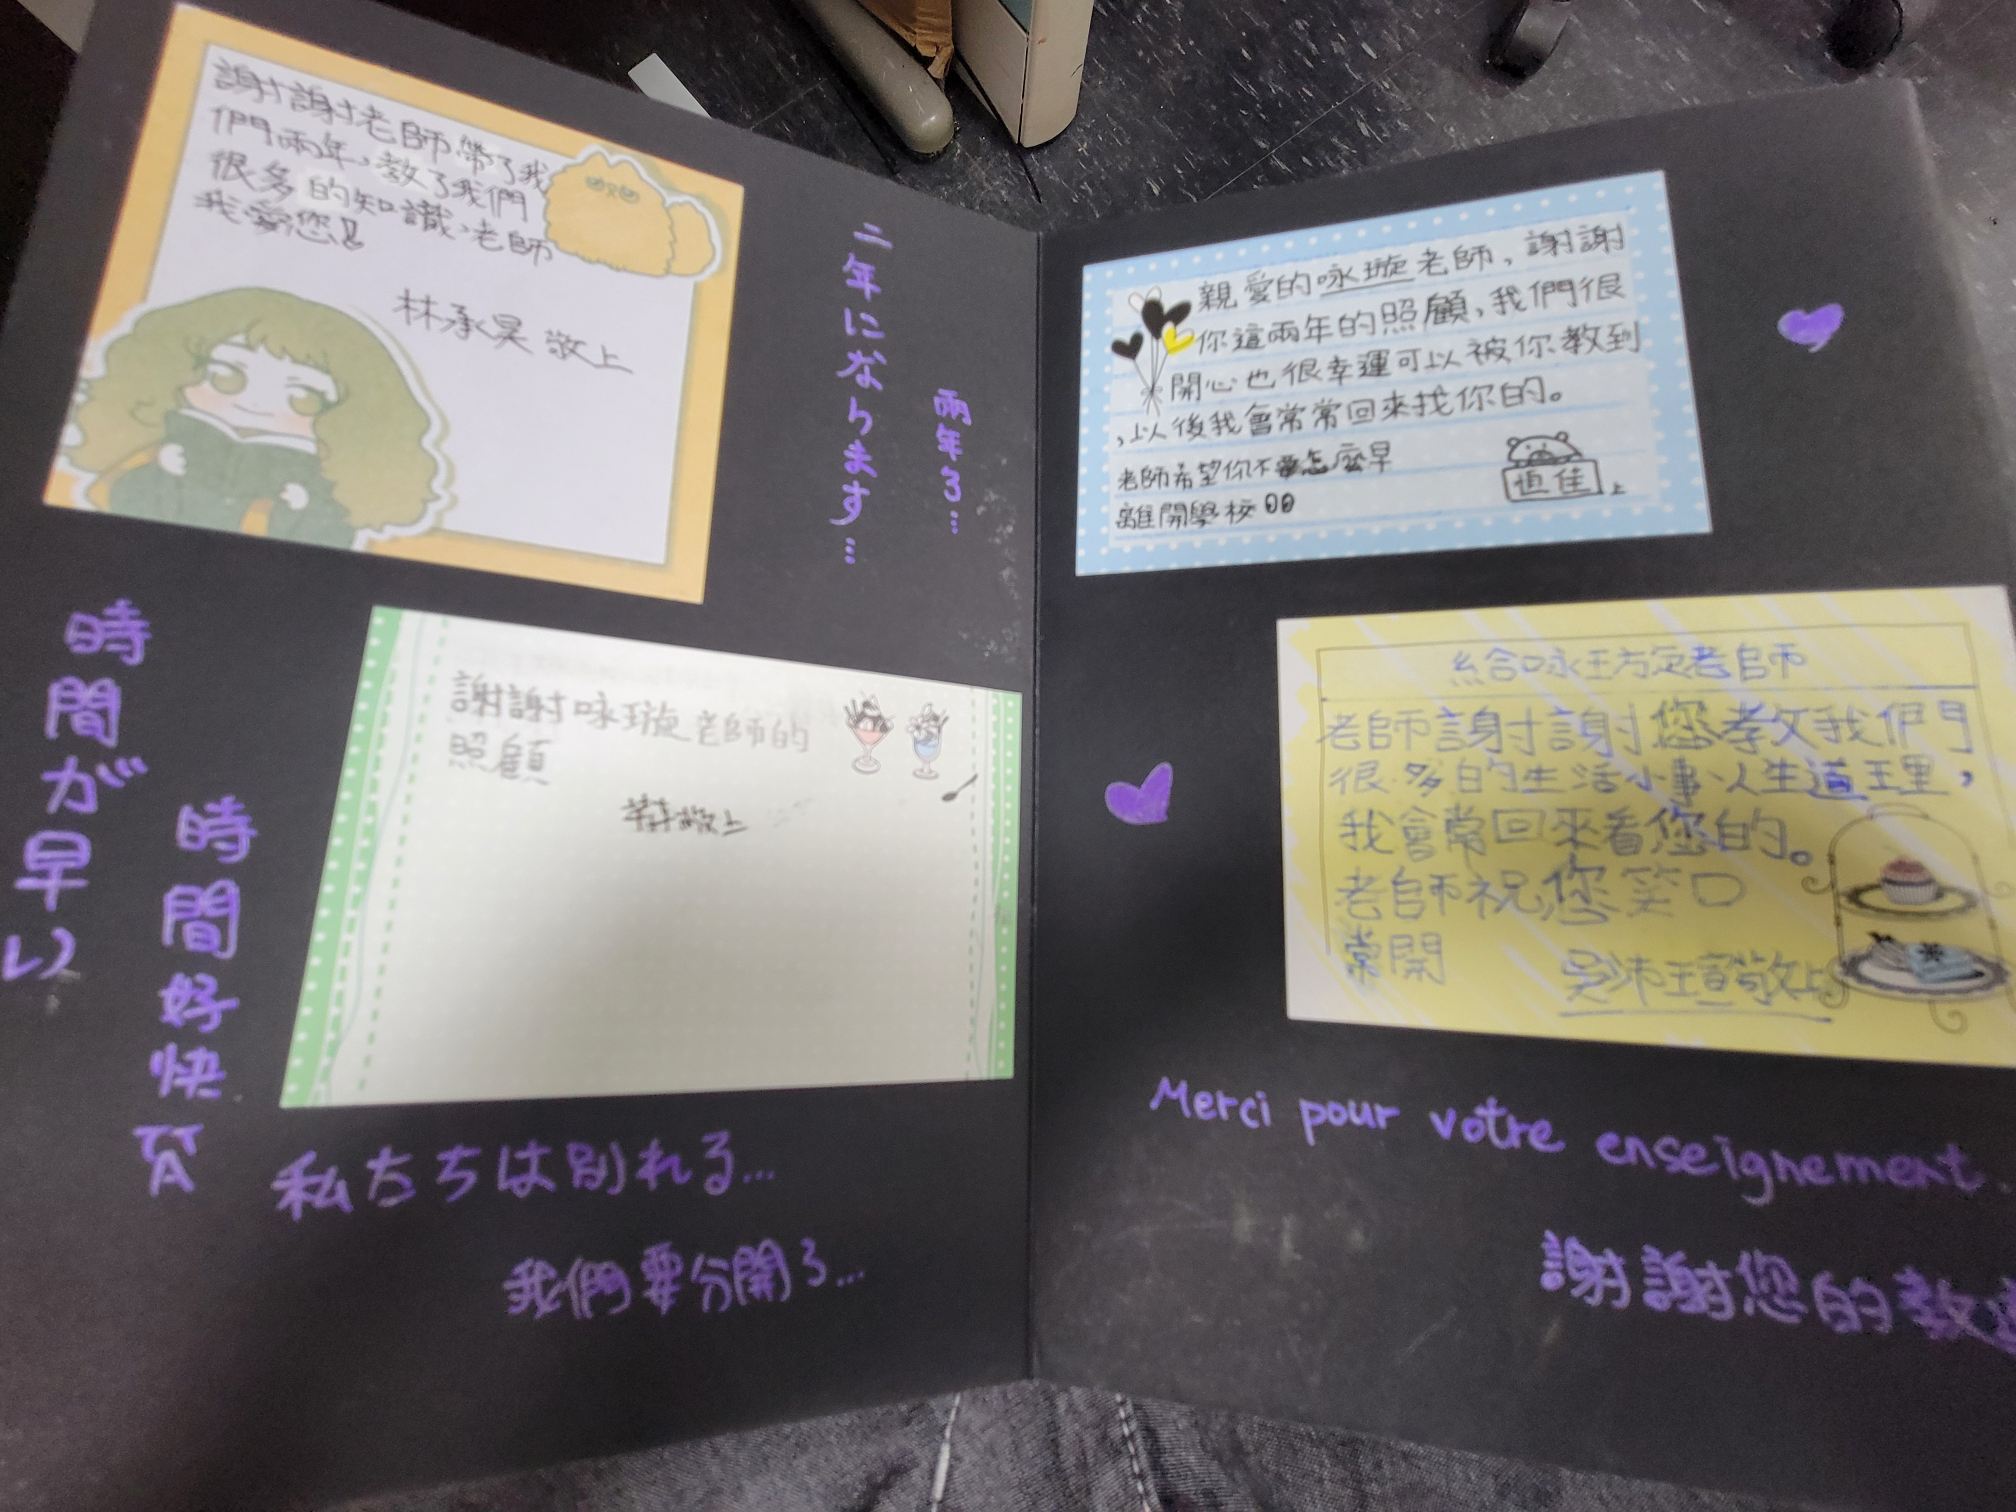 謝謝老師帶了我
們兩年,教了我們
很多的知識,老師
我愛您!
林承昊 敬上
二年になります…
兩年了…
時間が早い
時間好快
謝謝咏璇老師的
照顧
敬上
私たちは別れる...
我們要分開了...
親愛的咏璇老師,謝謝
你這兩年的照顧,我們很
開心也很幸運可以被你教到
,以後我會常常回來找你的。
老師希望你不要怎麼早
離開學校
恒佳上
給咏璇老師
老師謝謝您教我們
很多的生活小事人生道理,
我會常回來看您的。
老師祝您笑口
常開
吳沛瑄敬上
Merci pour votre enseignement.
謝謝您的教